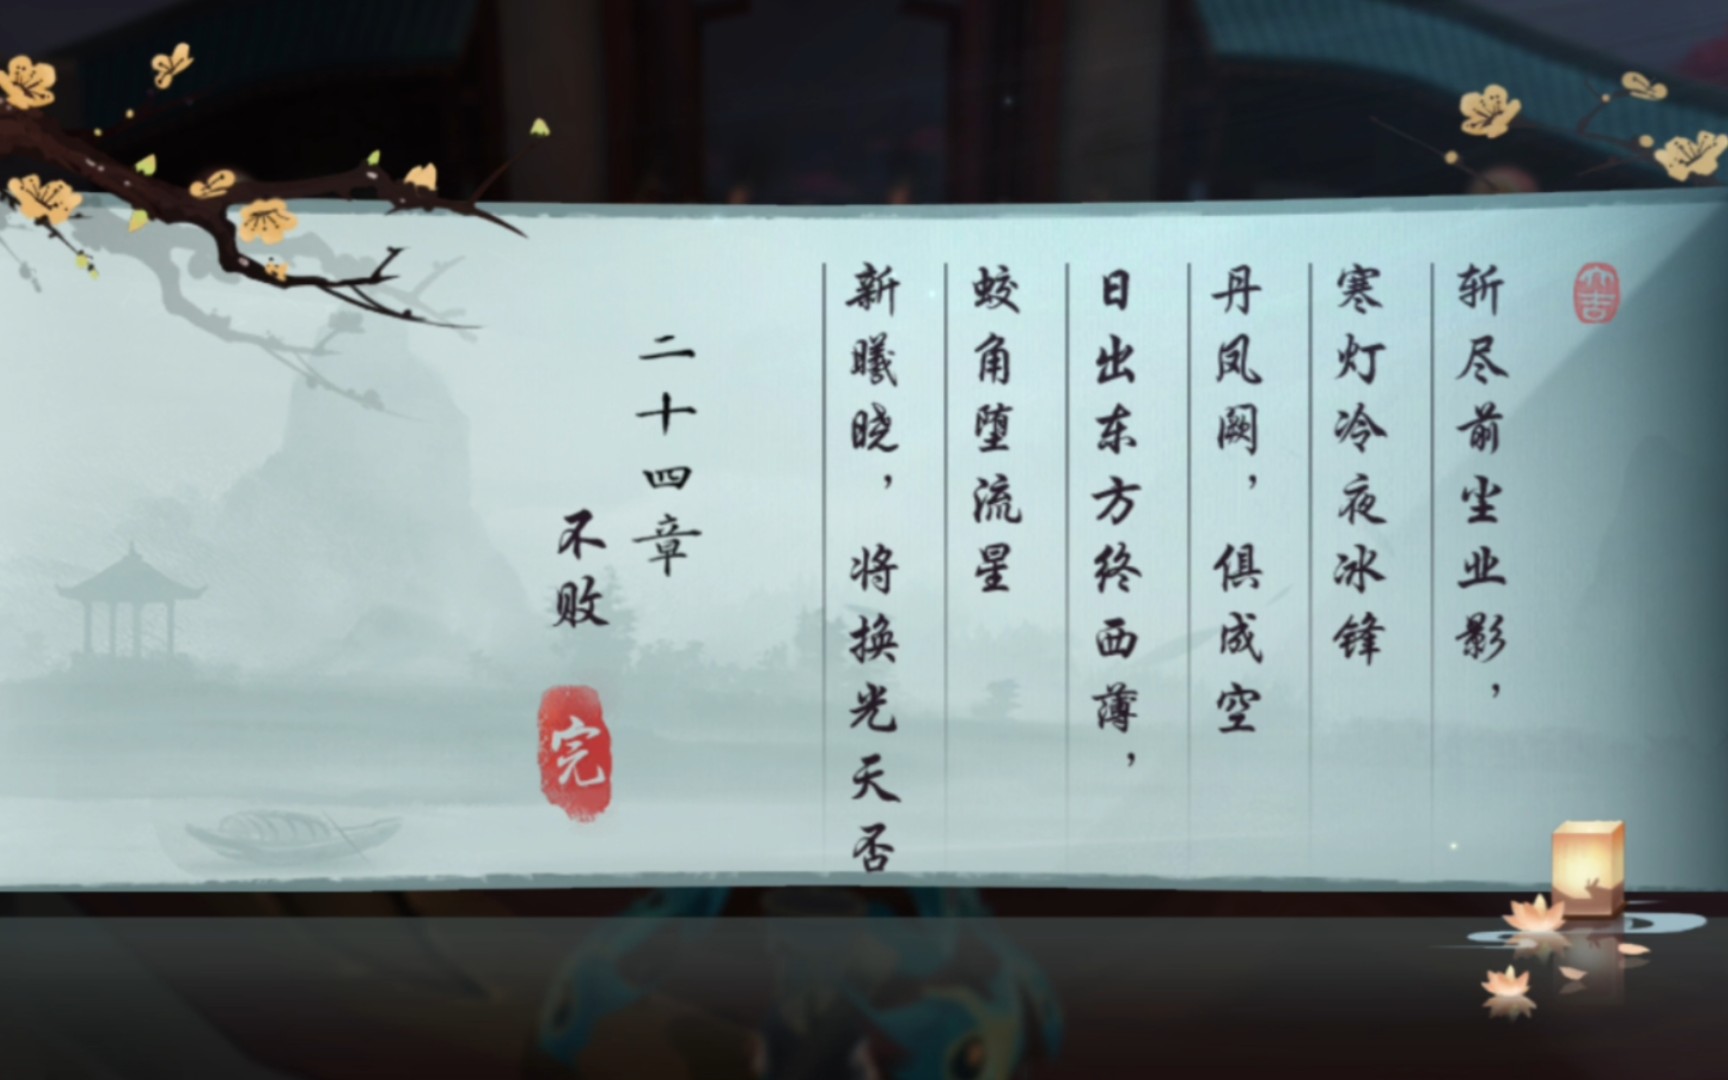 大吉
斩尽前尘业影，
寒灯冷夜冰锋
丹凤阙，俱成空
日出东方终西薄，
蛟角堕流星
新曦晓，将换光天否
二十四章
不败
完